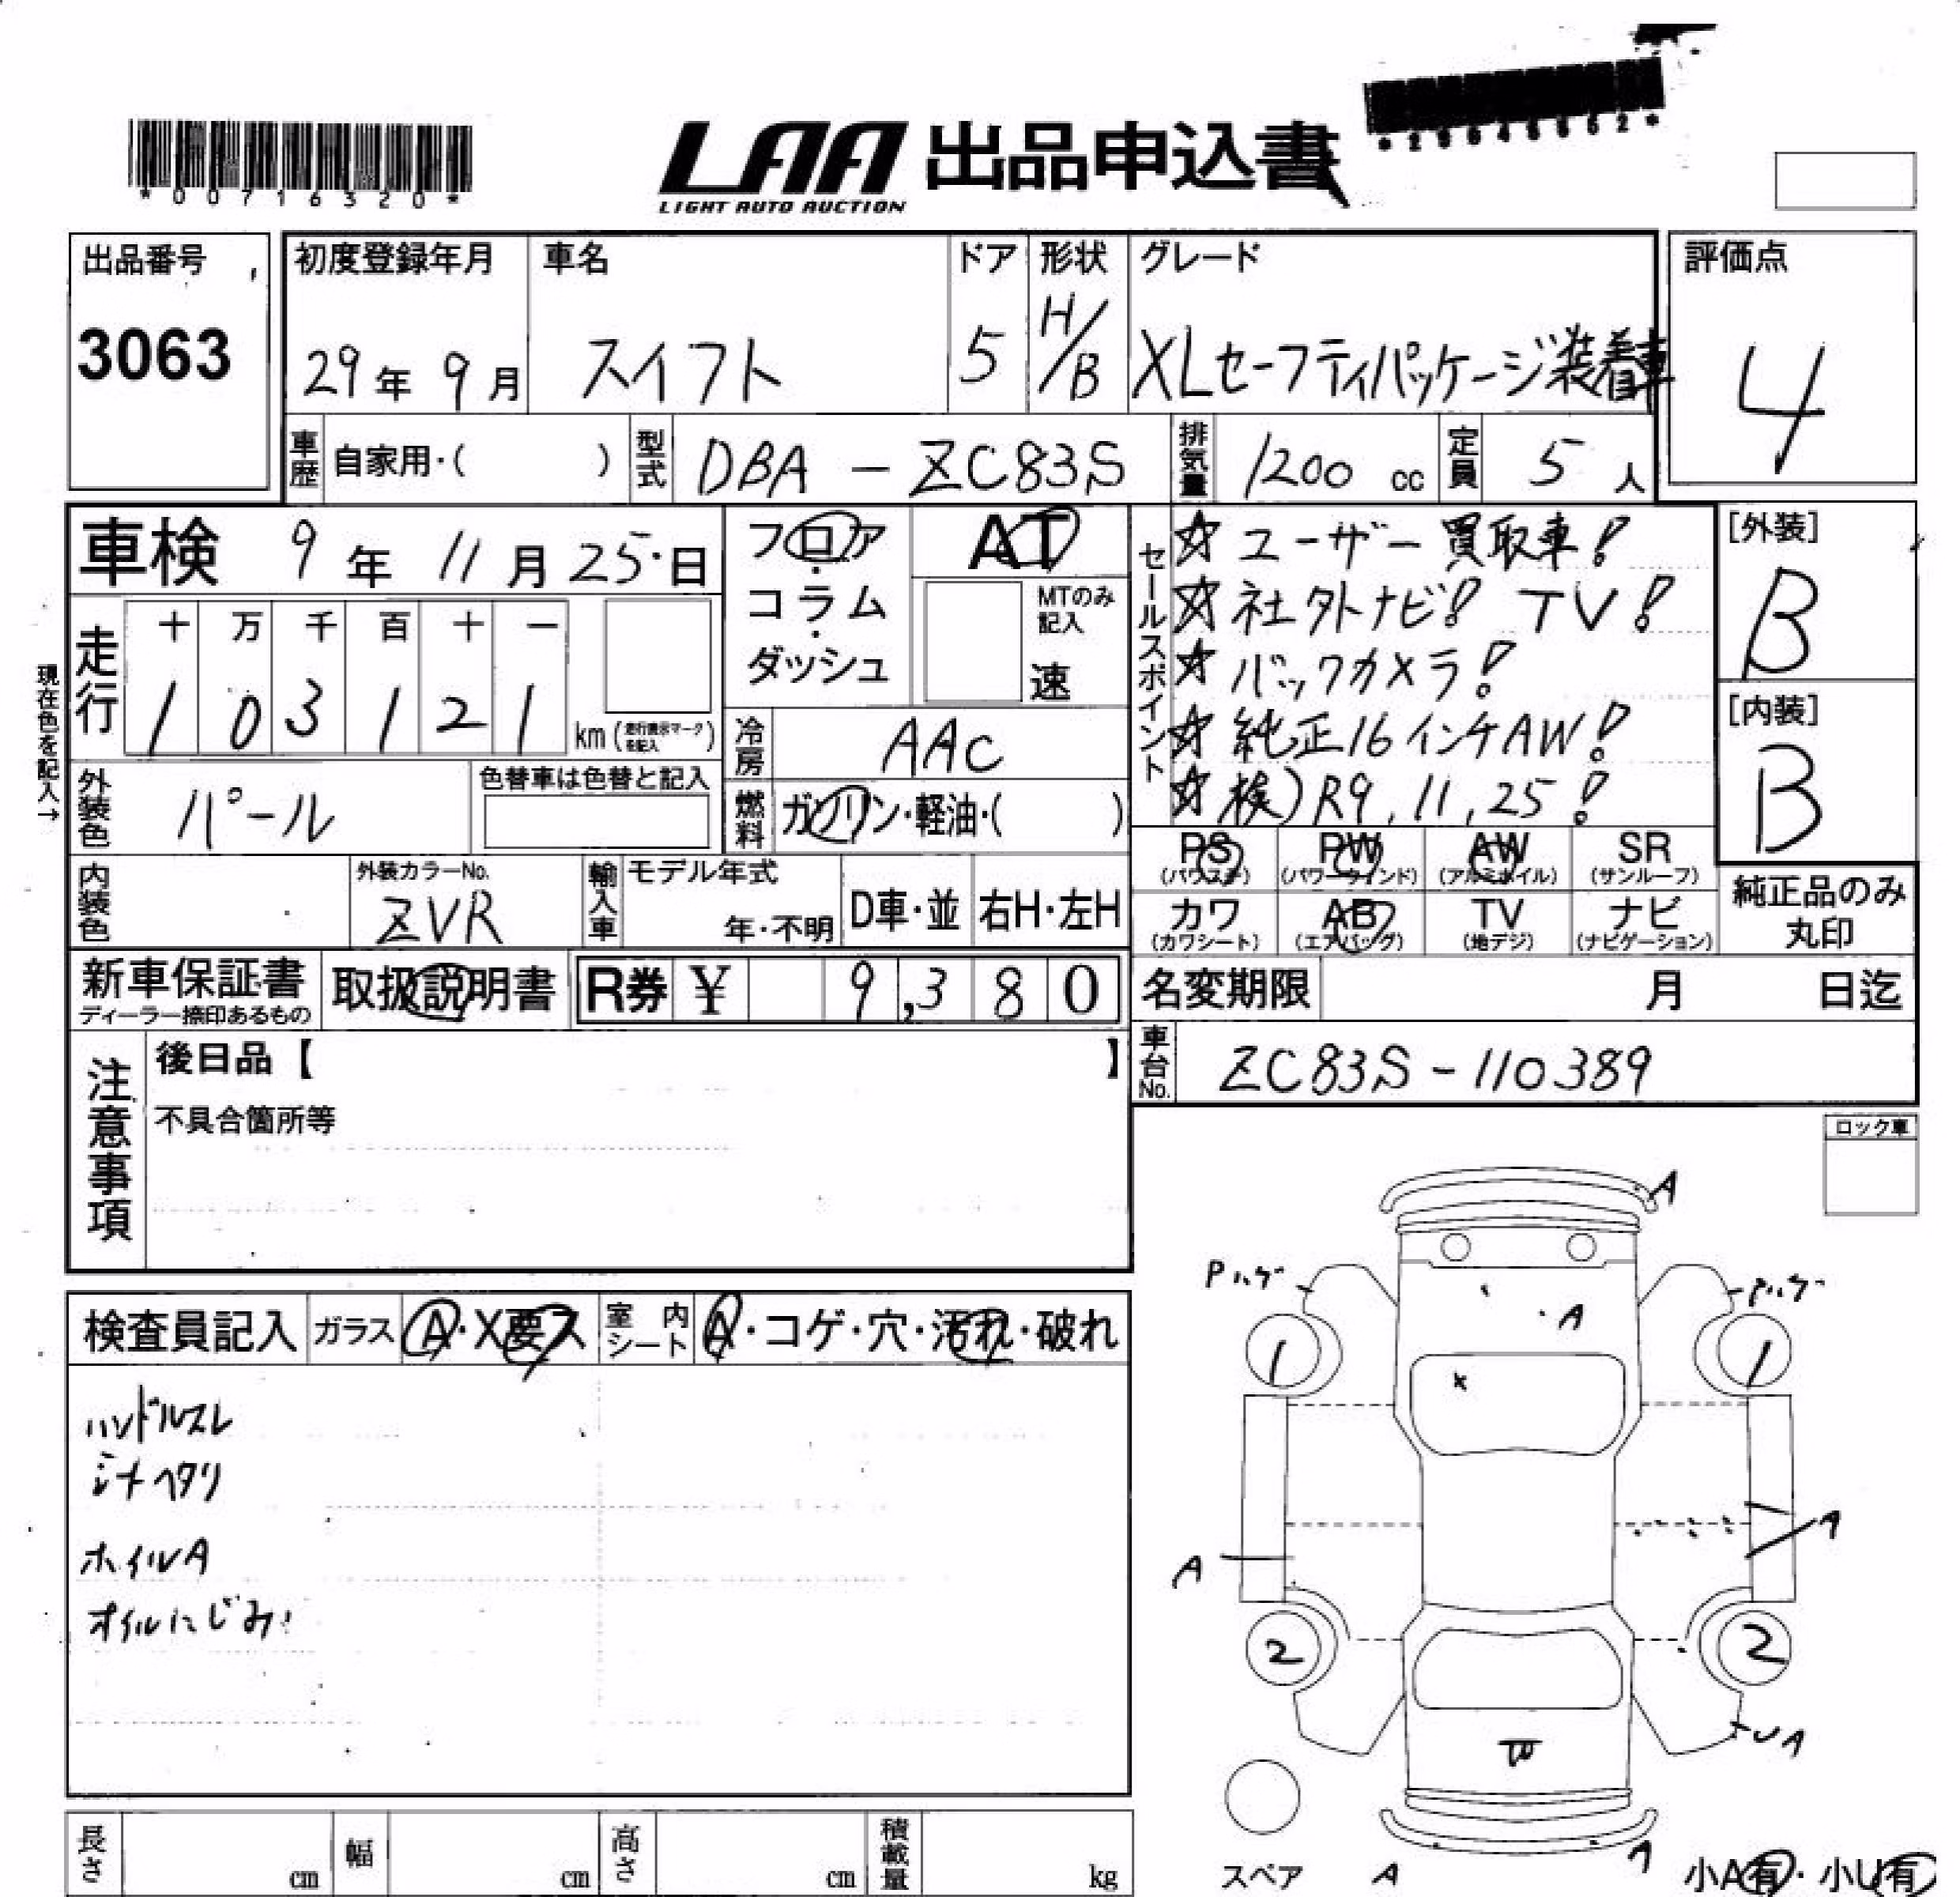 *00716320*
LAA 出品申込書
LIGHT AUTO AUCTION
出品番号
3063
初度登録年月
29年 9月
車名
スイフト
ドア
5
形状
H/B
グレード
XLセーフティパッケージ装着車
評価点
4
車歴 自家用・( )
型式 DBA - ZC83S
排気量 1200 cc
定員 5 人
車検 9年 11月 25日
フロア・コラム・ダッシュ
AT
MTのみ記入
速
セールスポイント
☆ ユーザー買取車!
☆ 社外ナビ! TV!
☆ バックカメラ!
☆ 純正16インチAW!
☆ 検)R9,11,25!
[外装]
B
[内装]
B
現在色を記入→
走行
十 万 千 百 十 一
1 0 3 1 2 1
km (走行表示マークを記入)
冷房 AAC
燃料 ガソリン・軽油・( )
外装色 パール
色替車は色替と記入
内装色
外装カラーNo.
ZVR
輸入車
モデル年式
年・不明
D車・並
右H・左H
PS (パワステ)
PW (パワーウィンド)
AW (アルミホイル)
SR (サンルーフ)
カワ (カワシート)
AB (エアバッグ)
TV (地デジ)
ナビ (ナビゲーション)
純正品のみ丸印
新車保証書
ディーラー捺印あるもの
取扱説明書
R券 ¥ 9,380
名変期限 月 日迄
車台No. ZC83S-110389
注意事項
後日品【 】
不具合箇所等
ロック車
検査員記入
ガラス A・X要ス
室内シート A・コゲ・穴・汚れ・破れ
ハンドルスレ
シートヘタリ
ホイルA
オイルにじみ
A
Pハゲ
Pハゲ
A
1
1
X
A
A
2
2
UA
スペア
A
A
小A有・小U有
長さ cm
幅 cm
高さ cm
積載量 kg